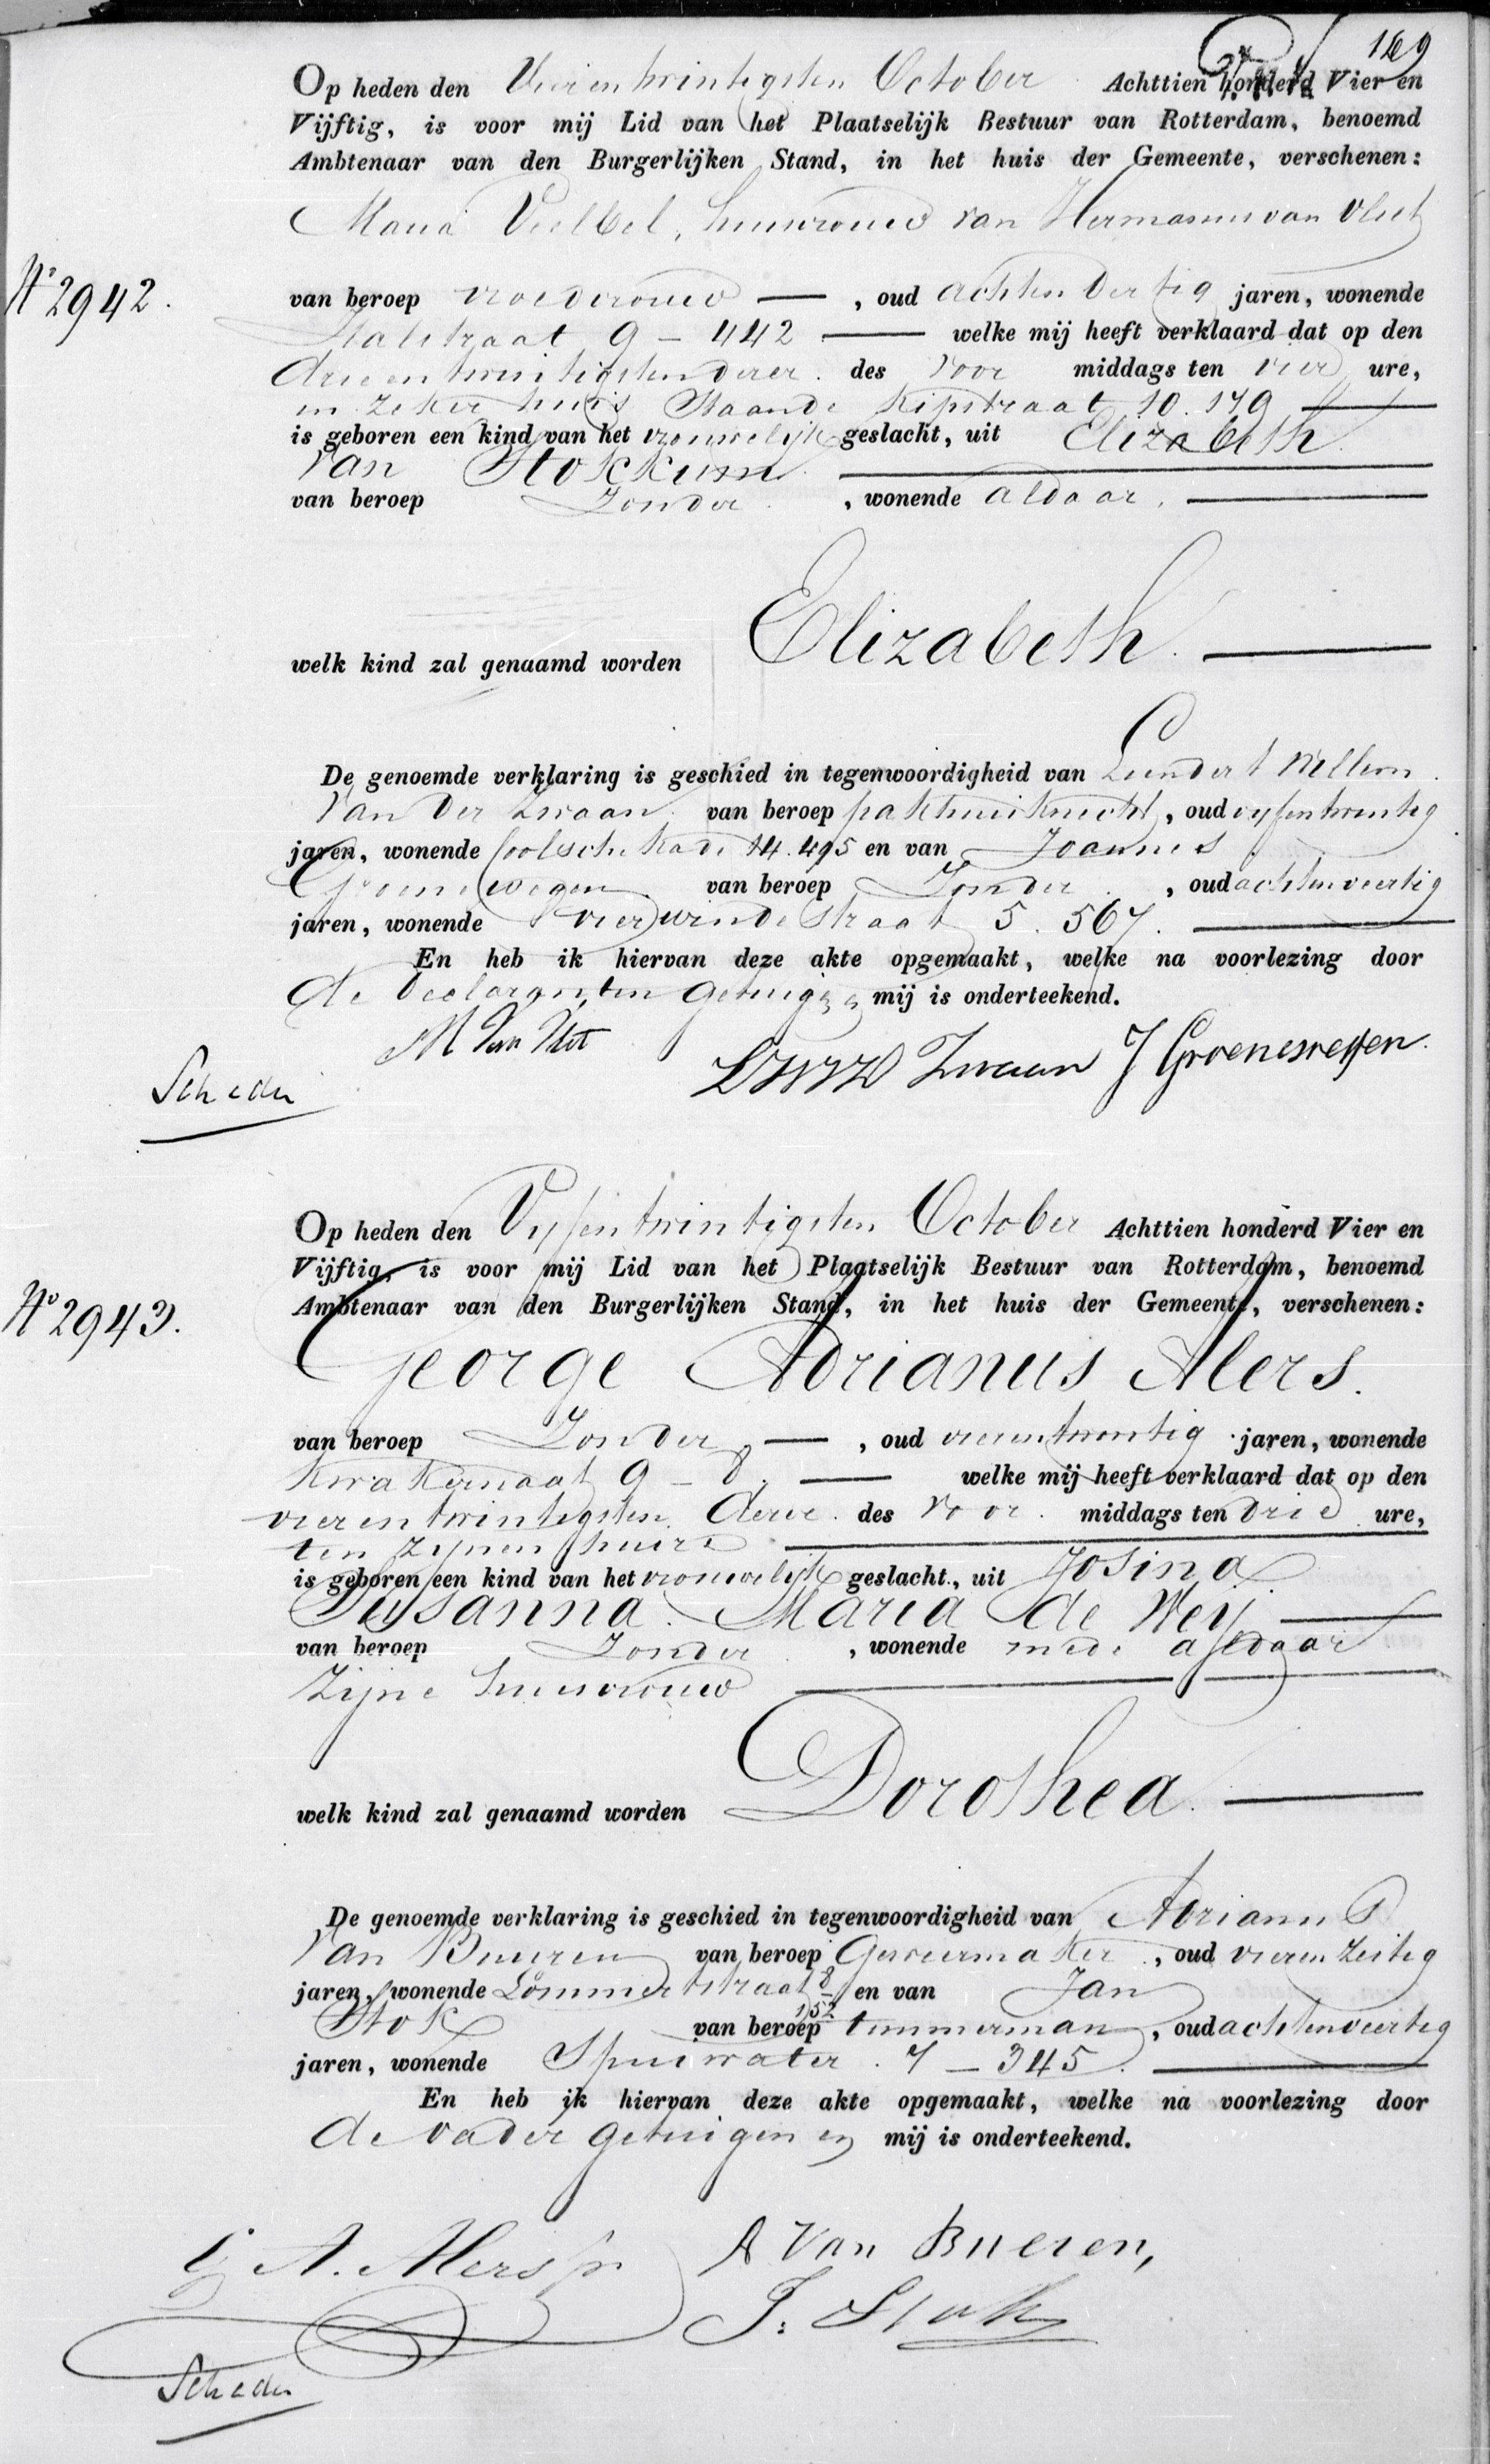 169
Op heden den Vierentwintigsten October Achttien honderd Vier en
Vijftig, is voor mij Lid van het Plaatselijk Bestuur van Rotterdam, benoemd
Ambtenaar van den Burgerlijken Stand, in het huis der Gemeente, verschenen:
Maria Veelbel, huisvrouw van Hermanus van Vliet
No 2942.
van beroep vroedvrouw —, oud achtendertig jaren, wonende
Stalstraat 9 - 442 — welke mij heeft verklaard dat op den
drieentwintigsten dezer des voor middags ten vier ure,
in zeker huis Staande Kipstraat 10. 179 —
is geboren een kind van het vrouwelijk geslacht, uit Elizabeth
van Stokkum —
van beroep Zonder, wonende aldaar. —
welk kind zal genaamd worden Elizabeth. —
De genoemde verklaring is geschied in tegenwoordigheid van Leendert Willem
van der Zwaan van beroep pakhuisknecht, oud vyfentwintig
jaren, wonende Coolsche Kade 14. 495 en van Joannes
Groenewegen van beroep Zonder, oud achtenveertig
jaren, wonende Vierwindestraat 5. 567. —
En heb ik hiervan deze akte opgemaakt, welke na voorlezing door
de declarante, getuigen en mij is onderteekend.
M Van Vliet
L W V D Zwaan J Groenewegen.
Op heden den Vyfentwintigsten October Achttien honderd Vier en
Vijftig, is voor mij Lid van het Plaatselijk Bestuur van Rotterdam, benoemd
Ambtenaar van den Burgerlijken Stand, in het huis der Gemeente, verschenen:
No 2943.
George Adrianus Alers.
van beroep Zonder —, oud vierentwintig jaren, wonende
Kwakernaat 9 - 8. — welke mij heeft verklaard dat op den
vierentwintigsten dezer des voor middags ten drie ure,
ten zijnen huize —
is geboren een kind van het vrouwelijk geslacht, uit Josina
Susanna Maria de Weij —
van beroep Zonder, wonende mede aldaar
Zijne huisvrouw —
welk kind zal genaamd worden Dorothea. —
De genoemde verklaring is geschied in tegenwoordigheid van Adrianus
van Bueren van beroep Geweermaker, oud vierenzestig
jaren, wonende Lommertstraat 8/152 en van Jan
Stok van beroep timmerman, oud achtenveertig
jaren, wonende Spuiwater. 7 - 345. —
En heb ik hiervan deze akte opgemaakt, welke na voorlezing door
de vader getuigen en mij is onderteekend.
G A. Alers jr A Van Bueren,
J. Stok